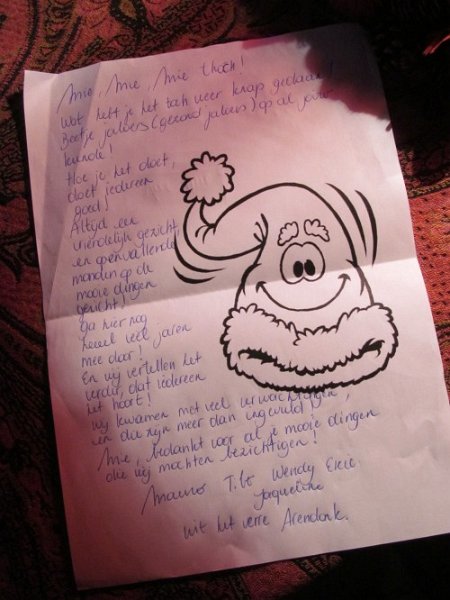 Mie, Mie, Mie thoch!
Wat heb je het toch weer knap gedaan!
Beetje jaloers (gezond jaloers) op al jouw
kunde!
Hoe je het doet,
doet iedereen
goed!
Altijd een
vriendelijk gezicht
en openvallende
monden op de
mooie dingen
gericht!
Ga hier nog
heel veel jaren
mee door!
En wij vertellen het
verder, dat iedereen
het hoort!
Wij kwamen met veel verwachtingen,
en die zijn meer dan ingevuld,
Mie, bedankt voor al je mooie dingen
die wij mochten bezichtigen!
Tibo Wendy
Jacqueline
uit het verre Arendonk.